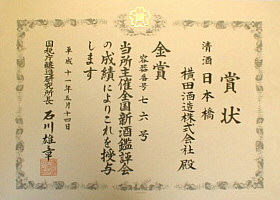 賞状
清酒 日本橋
横田酒造株式会社 殿
金賞
容器番号 七六号
当所主催全国新酒鑑評会
の成績によりこれを授与
します
平成十一年五月十四日
国税庁醸造研究所長 石川雄章